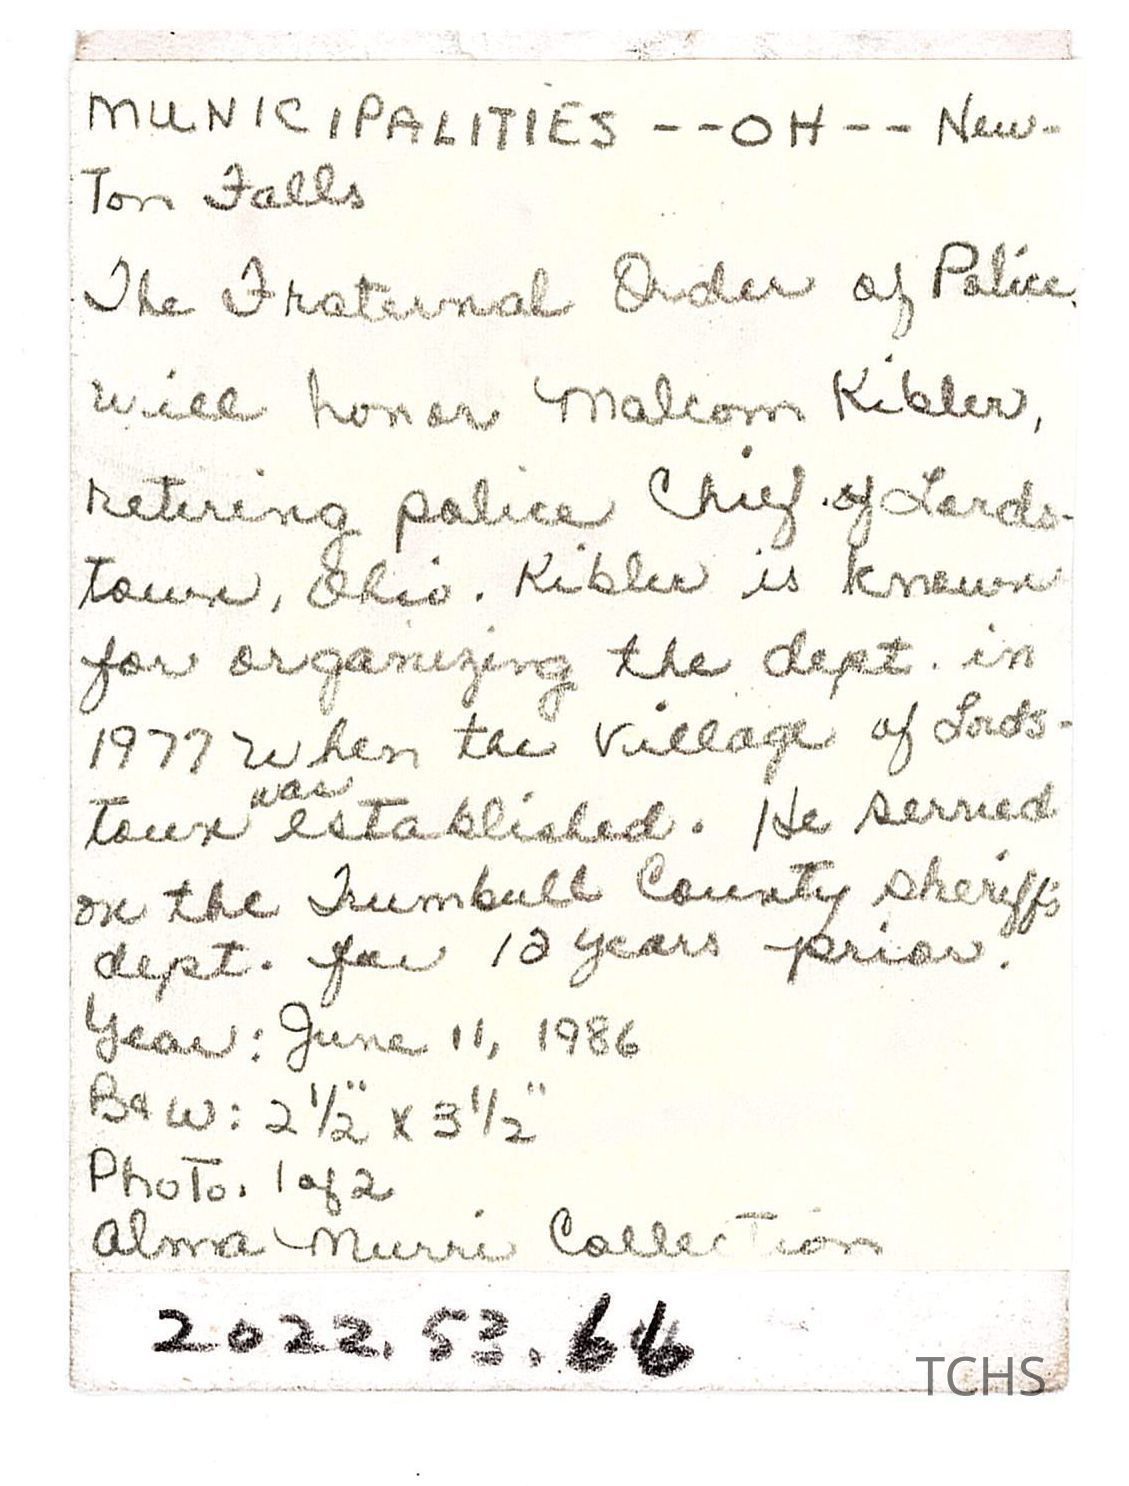 MUNICIPALITIES --OH-- New-
Ton Falls
The Fraternal Order of Police
will honor Malcom Kibler,
retering police Chief of Lords-
town, Ohio. Kibler is known
for organizing the dept. in
1977 when the village of Lords-
was
town established. He served
on the Trumbull County sheriff's
dept. for 12 years prior.
Year: June 11, 1986
B&W: 2 1/2" x 3 1/2"
Photo. 1 of 2
Alma Murri Collection
2022.53.66
TCHS